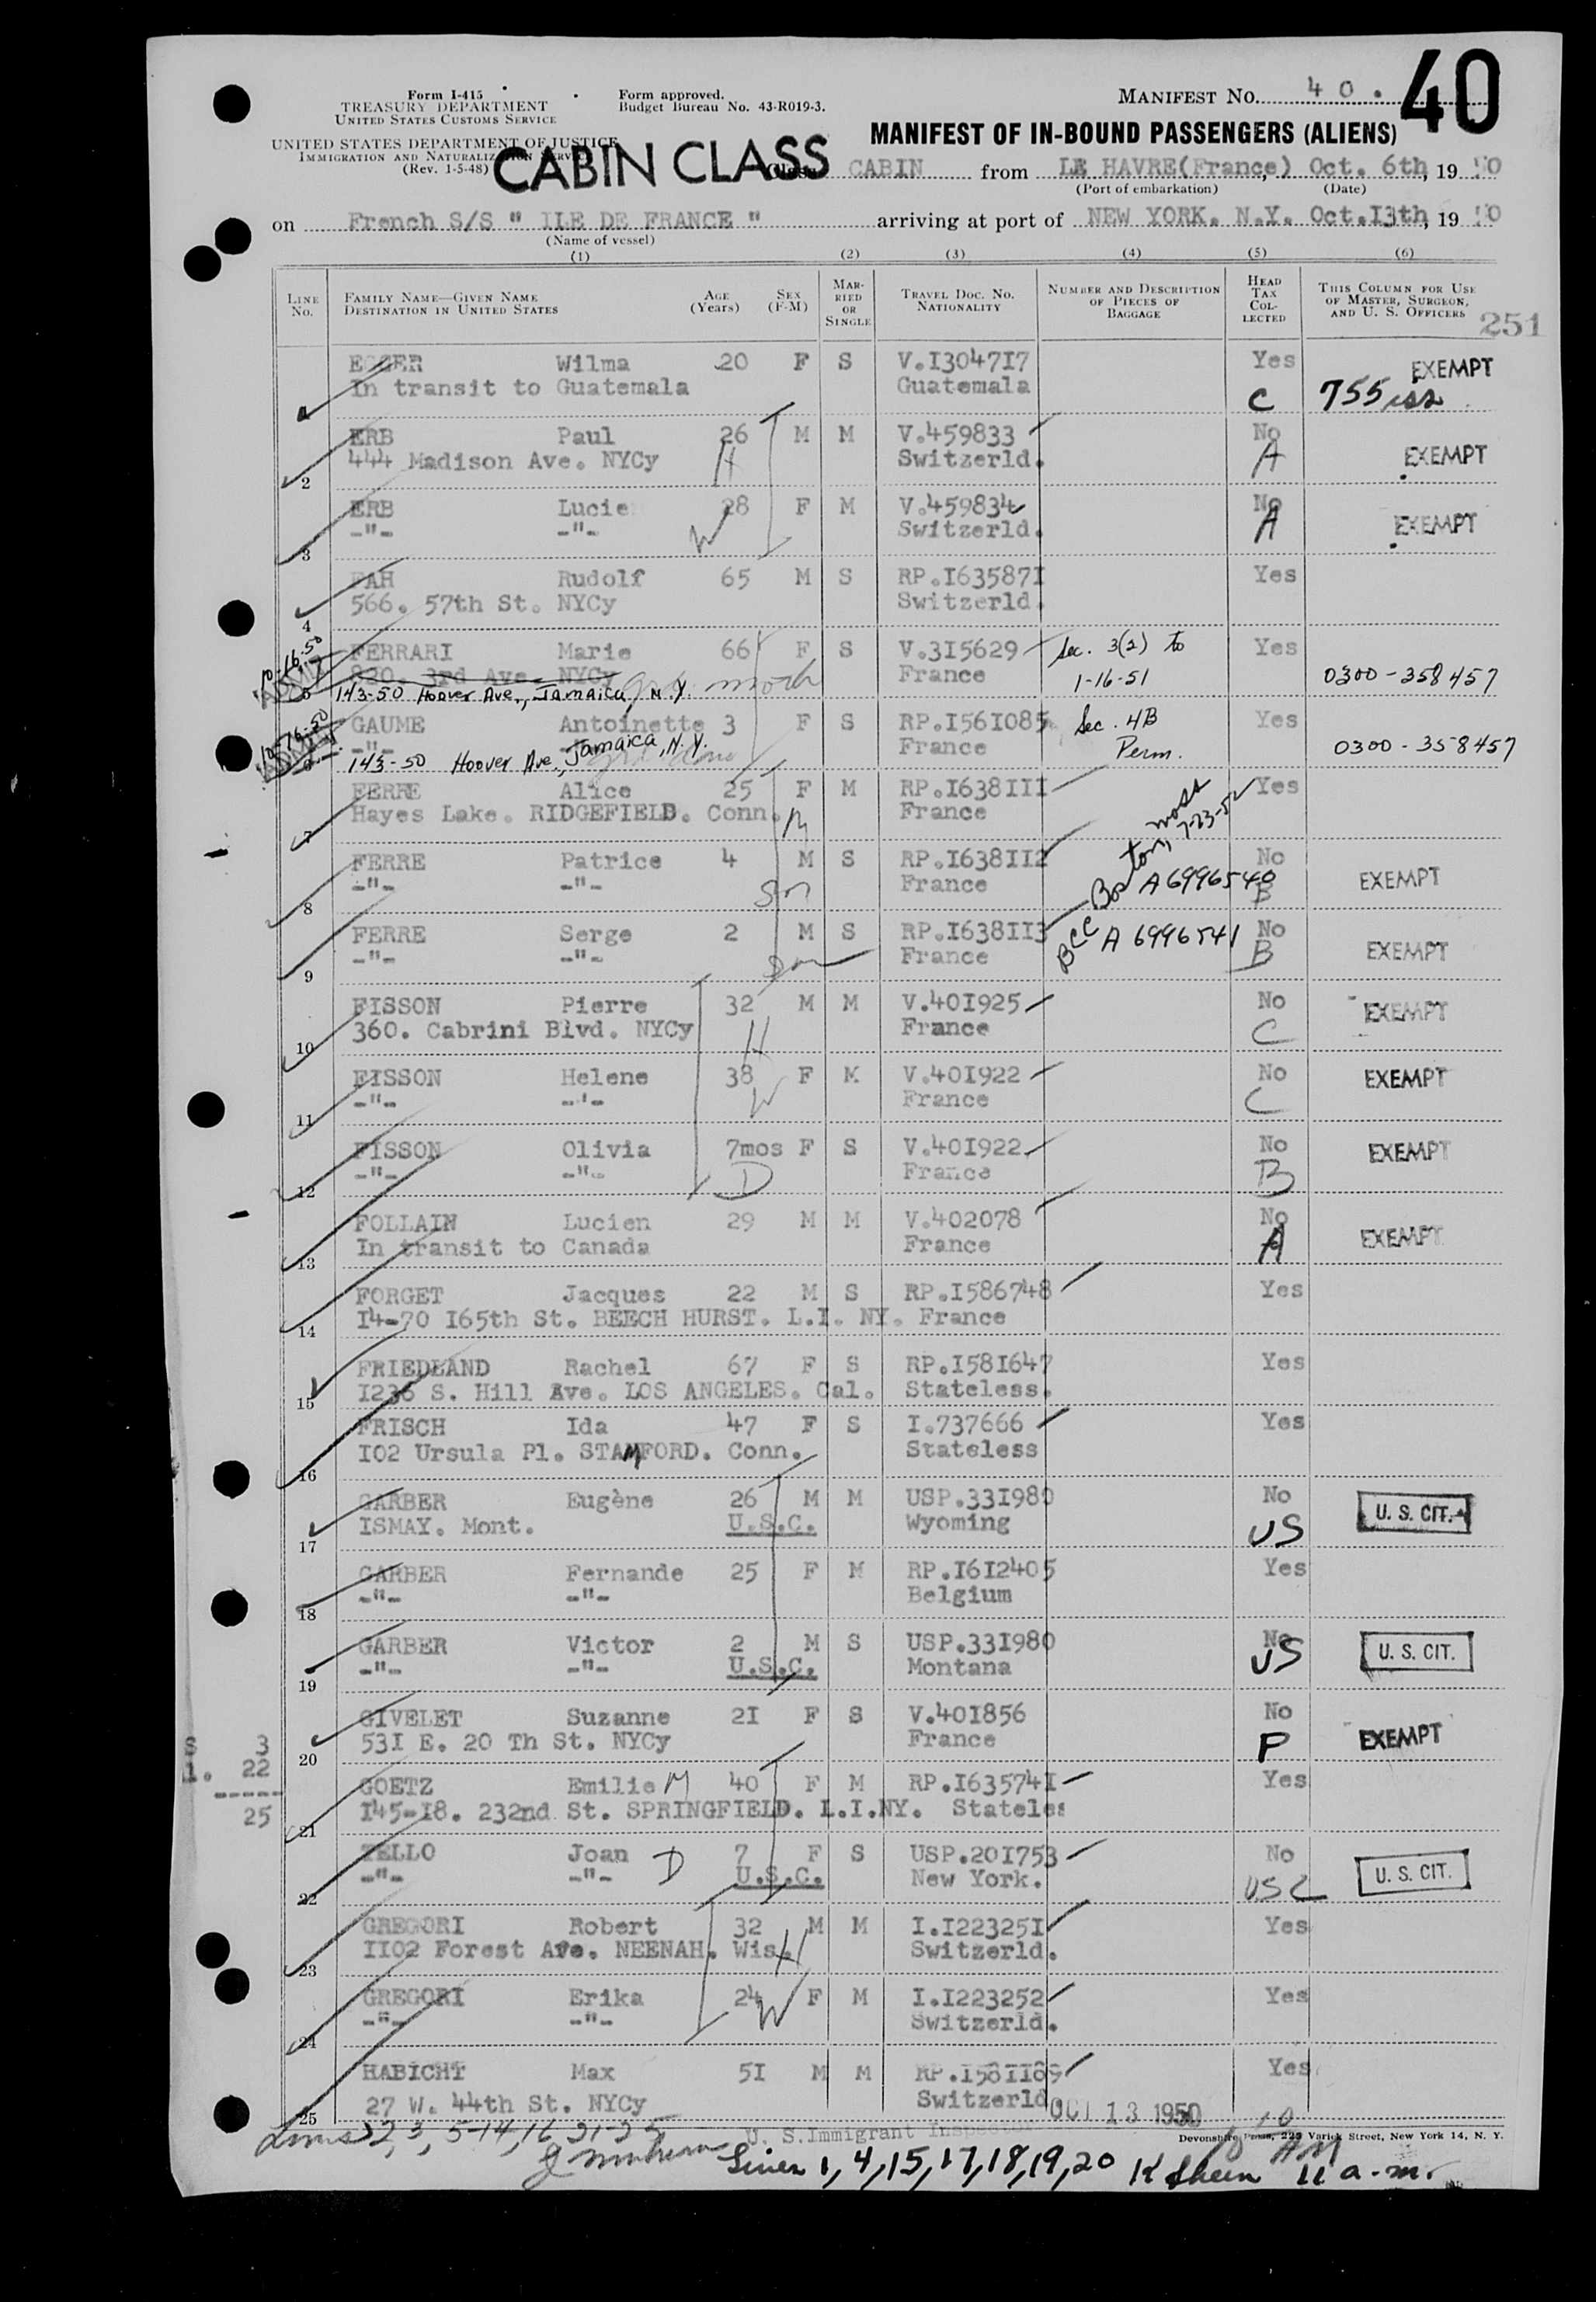 Form I-415
TREASURY DEPARTMENT
UNITED STATES CUSTOMS SERVICE
UNITED STATES DEPARTMENT OF JUSTICE
IMMIGRATION AND NATURALIZATION SERVICE
(Rev. 1-5-48)
Form approved.
Budget Bureau No. 43-R019-3.
MANIFEST NO. 40. 40
MANIFEST OF IN-BOUND PASSENGERS (ALIENS)
CABIN CLASS
Class CABIN from LE HAVRE(France), Oct. 6th, 19 50
(Port of embarkation) (Date)
on French S/S " ILE DE FRANCE " arriving at port of NEW YORK. N.Y. Oct.I3th, 19 50
(Name of vessel)
(1) (2) (3) (4) (5) (6)
LINE No. FAMILY NAME—GIVEN NAME DESTINATION IN UNITED STATES AGE (Years) SEX (F-M) MARRIED OR SINGLE TRAVEL DOC. NO. NATIONALITY NUMBER AND DESCRIPTION OF PIECES OF BAGGAGE HEAD TAX COLLECTED THIS COLUMN FOR USE OF MASTER, SURGEON, AND U. S. OFFICERS 251
EGGER Wilma 20 F S V.I3047I7 Yes EXEMPT
In transit to Guatemala Guatemala C 755
ERB Paul 26 M M V.459833 No
444 Madison Ave. NYCy H Switzerld. A EXEMPT
2
ERB Lucie 28 F M V.459834 No
-"- -"- W Switzerld. A EXEMPT
3
FAH Rudolf 65 M S RP.I63587I Yes
566. 57th St. NYCy Switzerld.
4
FERRARI Marie 66 F S V.3I5629 Sec. 3(2) to Yes
820. 3rd Ave. NYCy France 1-16-51 0300-358457
10-16-50 5 143-50 Hoover Ave., Jamaica, N.Y. moth
GAUME Antoinette 3 F S RP.I56I085 Sec. 4B Yes
-"- France Perm. 0300-358457
10-16-50 6 143-50 Hoover Ave., Jamaica, N.Y.
FERRE Alice 25 F M RP.I638III Yes
Hayes Lake. RIDGEFIELD. Conn. M France
7
Boston, Mass 7-23-52
FERRE Patrice 4 M S RP.I638II2 No
-"- -"- Son France A6996540 B EXEMPT
8
FERRE Serge 2 M S RP.I638II3 BCC A 6996541 No
-"- -"- Son France B EXEMPT
9
FISSON Pierre 32 M M V.40I925 No EXEMPT
360. Cabrini Blvd. NYCy H France C
10
FISSON Helene 38 F M V.40I922 No EXEMPT
-"- -"- W France C
11
FISSON Olivia 7mos F S V.40I922 No EXEMPT
-"- -"- D France B
12
FOLLAIN Lucien 29 M M V.402078 No
In transit to Canada France A EXEMPT
13
FORGET Jacques 22 M S RP.I586748 Yes
I4-70 I65th St. BEECH HURST. L.I. NY. France
14
FRIEDLAND Rachel 67 F S RP.I58I647 Yes
I236 S. Hill Ave. LOS ANGELES. Cal. Stateless.
15
FRISCH Ida 47 F S I.737666 Yes
I02 Ursula Pl. STAMFORD. Conn. Stateless
16
GARBER Eugène 26 M M USP.33I980 No U. S. CIT.
ISMAY. Mont. U.S.C. Wyoming US
17
GARBER Fernande 25 F M RP.I6I2405 Yes
-"- -"- Belgium
18
GARBER Victor 2 M S USP.33I980 No U. S. CIT.
-"- -"- U.S.C. Montana US
19
GIVELET Suzanne 2I F S V.40I856 No
53I E. 20 Th St. NYCy France P EXEMPT
20
S 3
1. 22
-----
25
GOETZ Emilie M 40 F M RP.I63574I Yes
I45-I8. 232nd St. SPRINGFIELD. L.I.NY. Stateles
21
TELLO Joan 7 F S USP.20I753 No
-"- -"- D U.S.C. New York. USC U. S. CIT.
22
GREGORI Robert 32 M M I.I22325I Yes
II02 Forest Ave. NEENAH. Wis. H Switzerld.
23
GREGORI Erika 24 F M I.I223252 Yes
-"- -"- W Switzerld.
24
HABICHT Max 5I M M RP.I58II89 Yes
27 W. 44th St. NYCy Switzerld.
25 OCT 13 1950
Lines 2, 3, 5-14, 16, 21-25 U. S. Immigrant Inspector 10 AM
Devonshire Press, 223 Varick Street, New York 14, N. Y.
Lines 1, 4, 15, 17, 18, 19, 20 K Sheen 11 a.m.